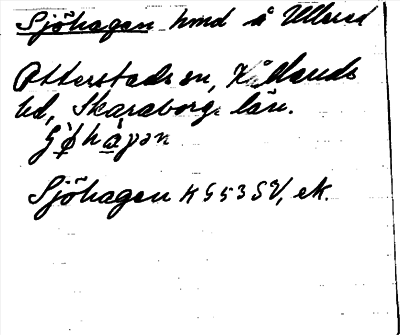 Sjöhagen hmd å Ullersd
Otterstads sn, Kållands
hd, Skaraborgs län.
Sjöhagen KG53SV, ek.